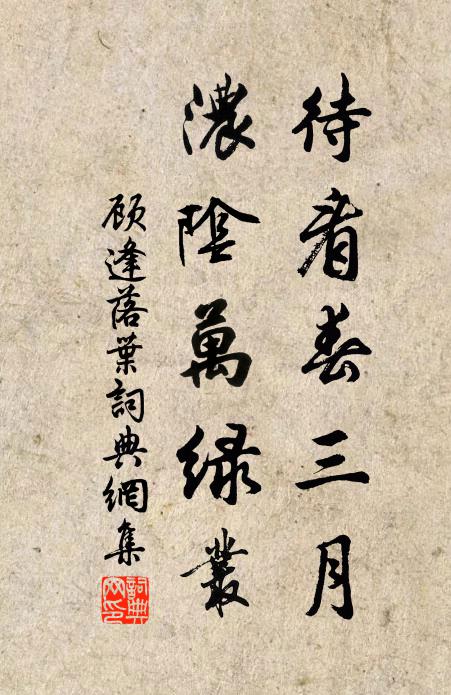 待看春三月
濃陰萬綠叢
顾逢落葉詞典網集
詞典網印